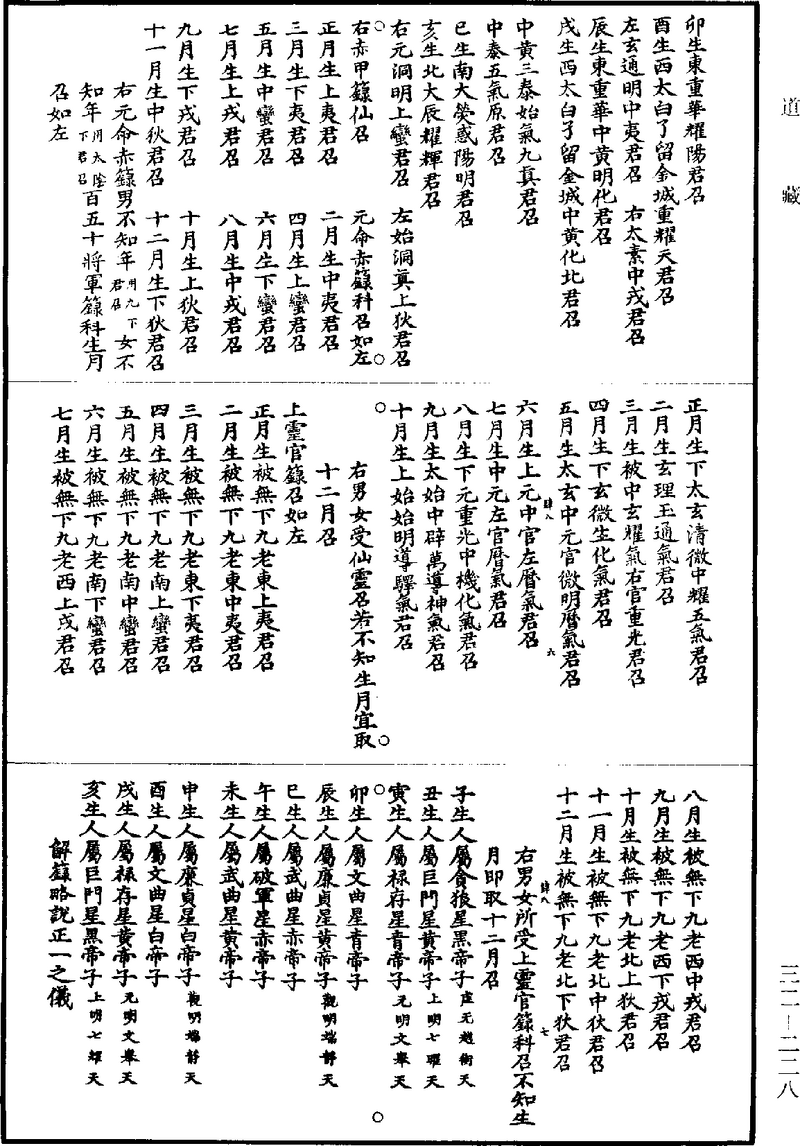 道藏
三二—二二八
卯生東重華耀陽君召
酉生西太白了留金城重耀天君召
左玄通明中夷君召　右太素中戎君召
辰生東重華中黃明化君召
戌生西太白了留金城中黃化北君召
中黃三泰始氣九真君召
中泰五氣原君召
巳生南大熒惑陽明君召
亥生北大辰耀輝君召
右元洞明上蠻君召　左始洞真上狄君召
右赤甲籙仙召　元命赤籙科召如左
正月生上夷君召　二月生中夷君召
三月生下夷君召　四月生上蠻君召
五月生中蠻君召　六月生下蠻君召
七月生上戎君召　八月生中戎君召
九月生下戎君召　十月生上狄君召
十一月生中狄君召　十二月生下狄君召
右元命赤籙男不知年用九下君召女不
知年用太陰下君召百五十將軍籙科生月
召如左
正月生下太玄清微中耀五氣君召
二月生玄理玉通氣君召
三月生被中玄耀氣右官重光君召
四月生下玄微生化氣君召
五月生太玄中元官微明曆氣君召
肆八　六
六月生上元中官左曆氣君召
七月生中元左官曆氣君召
八月生下元重光中機化氣君召
九月生太始中辟萬導神氣君召
十月生上始始明導驛氣君召
右男女受仙靈召若不知生月宜取
十二月召
上靈官籙召如左
正月生被無下九老東上夷君召
二月生被無下九老東中夷君召
三月生被無下九老東下夷君召
四月生被無下九老南上蠻君召
五月生被無下九老南中蠻君召
六月生被無下九老南下蠻君召
七月生被無下九老西上戎君召
八月生被無下九老西中戎君召
九月生被無下九老西下戎君召
十月生被無下九老北上狄君召
十一月生被無下九老北中狄君召
十二月生被無下九老北下狄君召
肆八　七
右男女所受上靈官籙科召不知生
月即取十二月召
子生人屬貪狼星黑帝子虛无越衡天
丑生人屬巨門星黃帝子上明七曜天
寅生人屬祿存星青帝子元明文舉天
卯生人屬文曲星青帝子
辰生人屬廉貞星黃帝子觀明端靜天
巳生人屬武曲星赤帝子
午生人屬破軍星赤帝子
未生人屬武曲星黃帝子
申生人屬廉貞星白帝子觀明端靜天
酉生人屬文曲星白帝子
戌生人屬祿存星黃帝子元明文舉天
亥生人屬巨門星黑帝子上明七耀天
解籙略說正一之儀